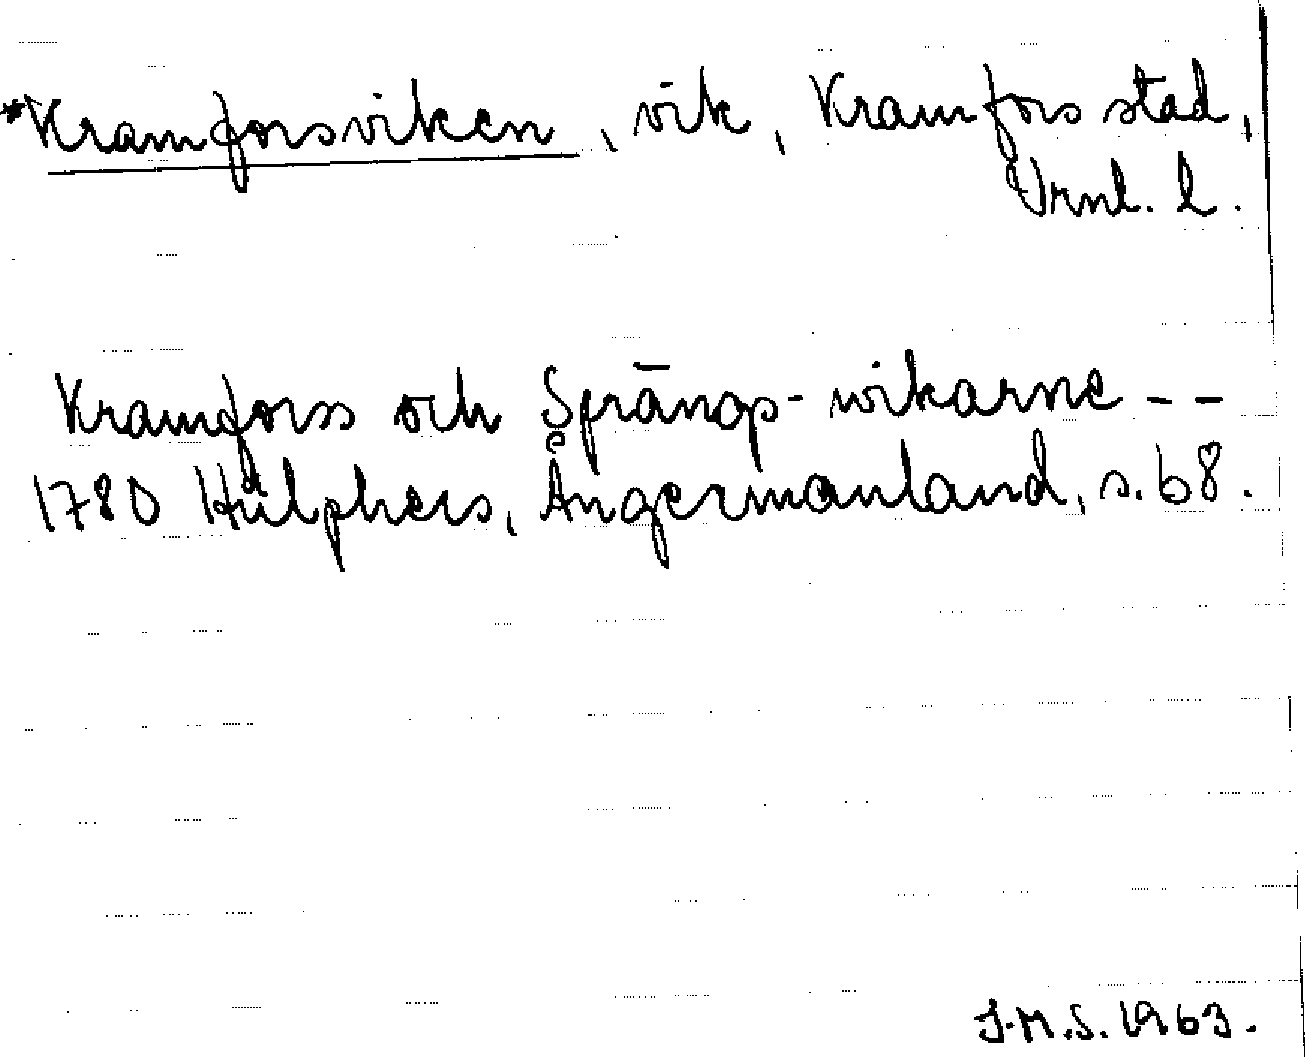 *Kramforsviken, vik, Kramfors stad,
Vrnl. l.
Kramforss och Sprängs-wikarne --
1780 Hülphers, Ångermanland, s. 68.
J.M.S. 1963.